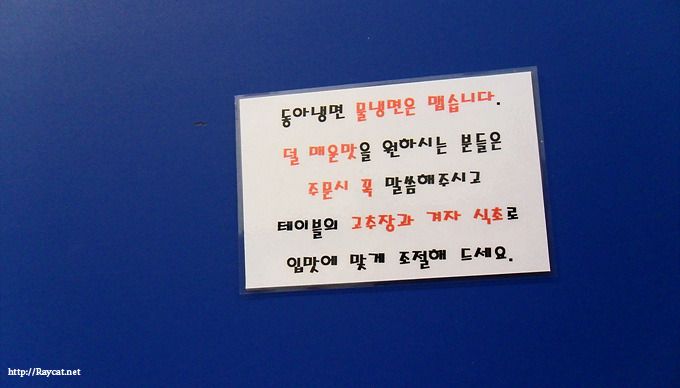 동아냉면 물냉면은 맵습니다.
덜 매운맛을 원하시는 분들은
주문시 꼭 말씀해주시고
테이블의 고추장과 겨자 식초로
입맛에 맞게 조절해 드세요.
http://Raycat.net